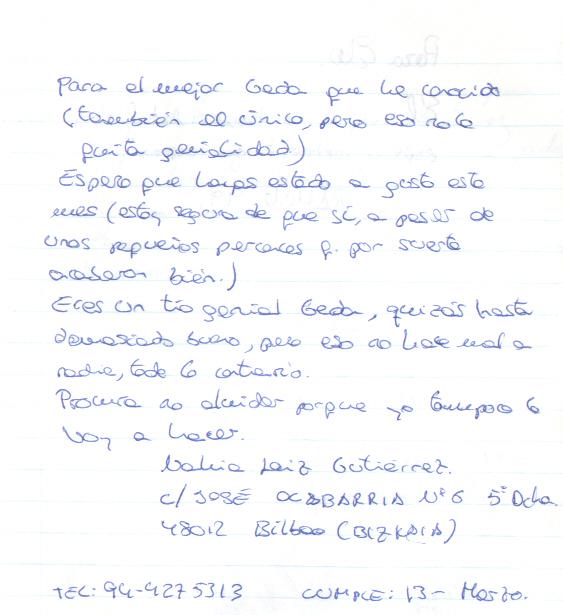 Para el mejor Geda que he conocido
(también el único, pero eso no le
quita genialidad)
Espero que hayas estado a gusto este
mes (estoy segura de que sí, a pesar de
unos pequeños percances q. por suerte
acabaron bien.)
Eres un tío genial Geda, quizás hasta
demasiado bueno, pero eso no hace mal a
nadie, todo lo contrario.
Procura no olvidar porque yo tampoco lo
voy a hacer.
Gutiérrez.
C/ JOSÉ Nº 6 5º Dcha.
48012 Bilbao (BIZKAIA)
TEL: 94-4275313 CUMPLE: 13 - Marzo.